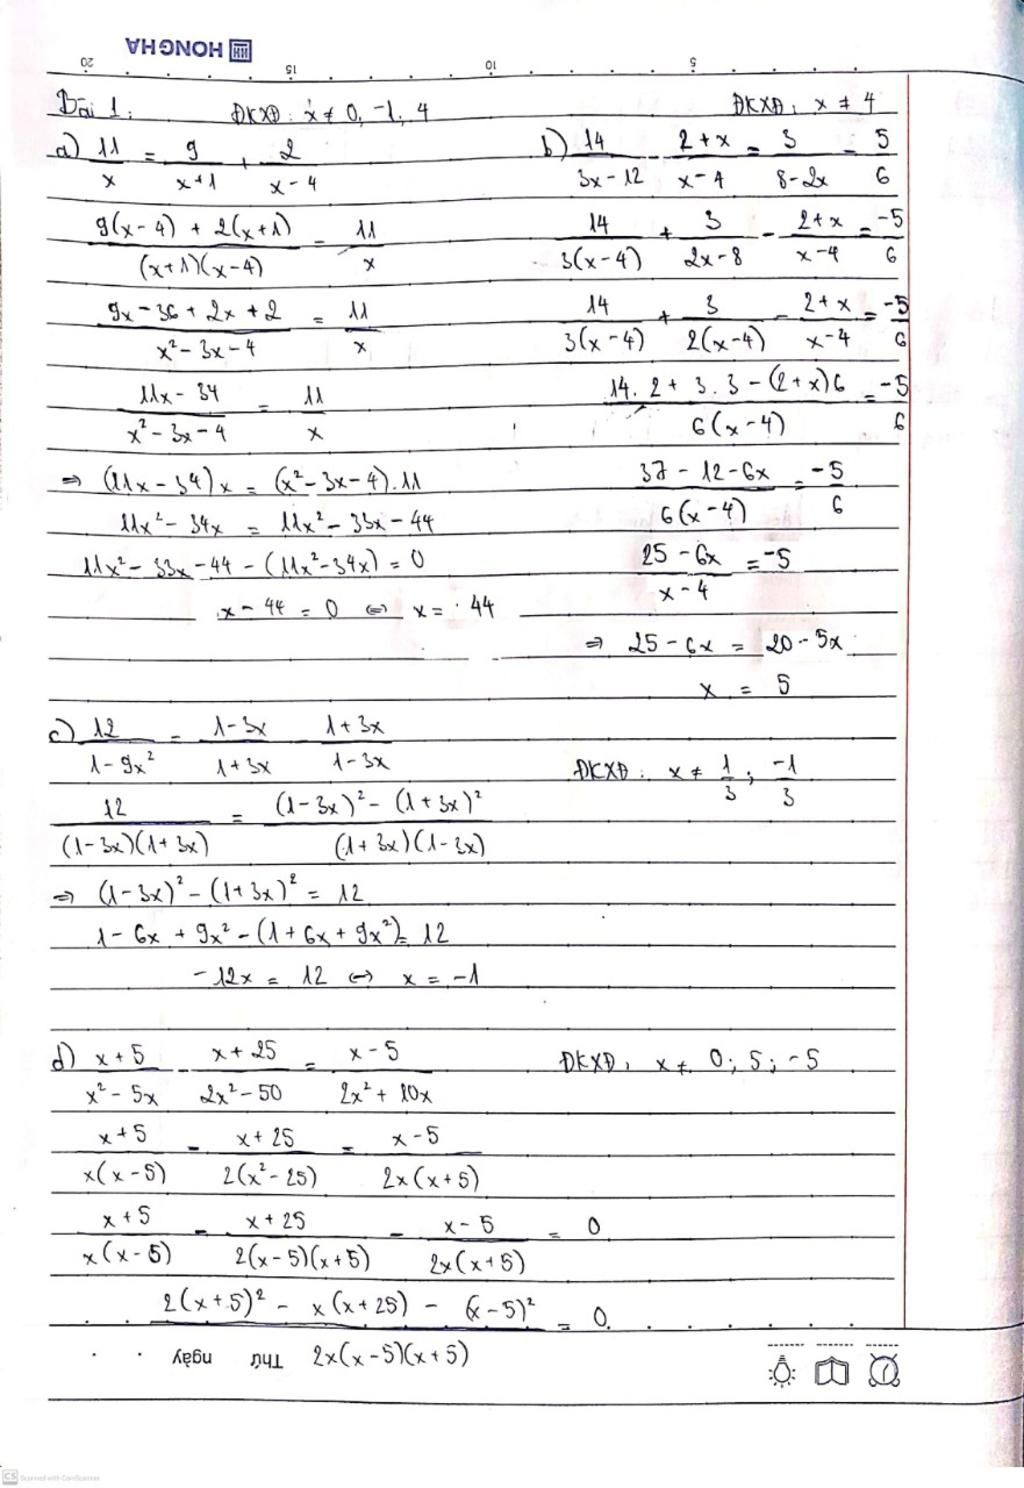 HONG HA
20 15 10 5
Bài 1: ĐKXĐ: x ≠ 0, -1, 4
a) 11/x = 9/(x+1) + 2/(x-4)
(9(x-4) + 2(x+1))/((x+1)(x-4)) = 11/x
(9x - 36 + 2x + 2)/(x² - 3x - 4) = 11/x
(11x - 34)/(x² - 3x - 4) = 11/x
=> (11x - 34)x = (x² - 3x - 4).11
11x² - 34x = 11x² - 33x - 44
11x² - 33x - 44 - (11x² - 34x) = 0
x - 44 = 0 <=> x = 44
ĐKXĐ: x ≠ 4
b) 14/(3x-12) - (2+x)/(x-4) = 3/(8-2x) - 5/6
14/(3(x-4)) + 3/(2x-8) - (2+x)/(x-4) = -5/6
14/(3(x-4)) + 3/(2(x-4)) - (2+x)/(x-4) = -5/6
(14.2 + 3.3 - (2+x)6)/(6(x-4)) = -5/6
(37 - 12 - 6x)/(6(x-4)) = -5/6
(25 - 6x)/(x-4) = -5
=> 25 - 6x = 20 - 5x
x = 5
c) 12/(1-9x²) = (1-3x)/(1+3x) - (1+3x)/(1-3x)
ĐKXĐ: x ≠ 1/3; -1/3
12/((1-3x)(1+3x)) = ((1-3x)² - (1+3x)²)/((1+3x)(1-3x))
=> (1-3x)² - (1+3x)² = 12
1 - 6x + 9x² - (1 + 6x + 9x²) = 12
-12x = 12 <=> x = -1
d) (x+5)/(x²-5x) - (x+25)/(2x²-50) = (x-5)/(2x²+10x) ĐKXĐ: x ≠ 0; 5; -5
(x+5)/(x(x-5)) - (x+25)/(2(x²-25)) = (x-5)/(2x(x+5))
(x+5)/(x(x-5)) - (x+25)/(2(x-5)(x+5)) - (x-5)/(2x(x+5)) = 0
(2(x+5)² - x(x+25) - (x-5)²)/(2x(x-5)(x+5)) = 0
Thứ ngày
CS Scanned with CamScanner